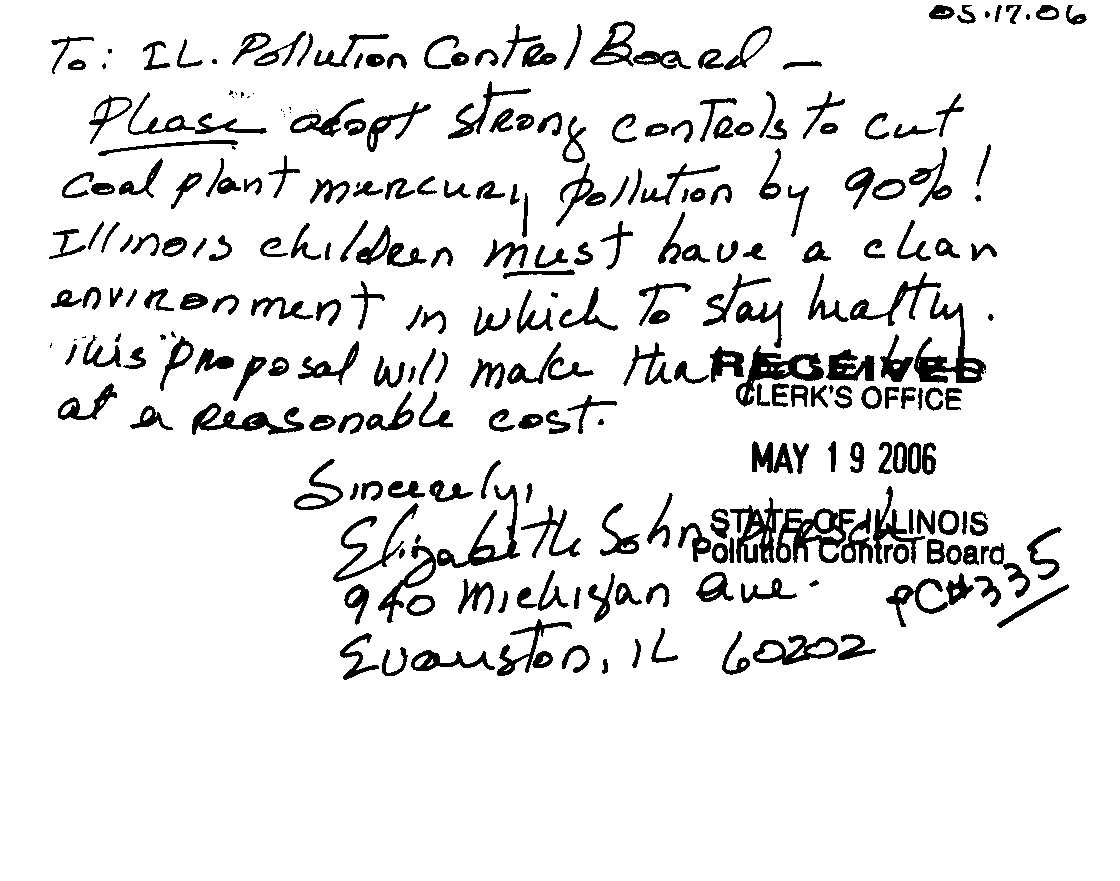 05.17.06
To: IL. Pollution Control Board –
Please adopt strong controls to cut
coal plant mercury pollution by 90%!
Illinois children must have a clean
environment in which to stay healthy.
This proposal will make that
RECEIVED
CLERK'S OFFICE
at a reasonable cost.
MAY 19 2006
Sincerely,
Elizabeth Sohn
STATE OF ILLINOIS
Pollution Control Board
940 Michigan Ave.
PC#335
Evanston, IL 60202